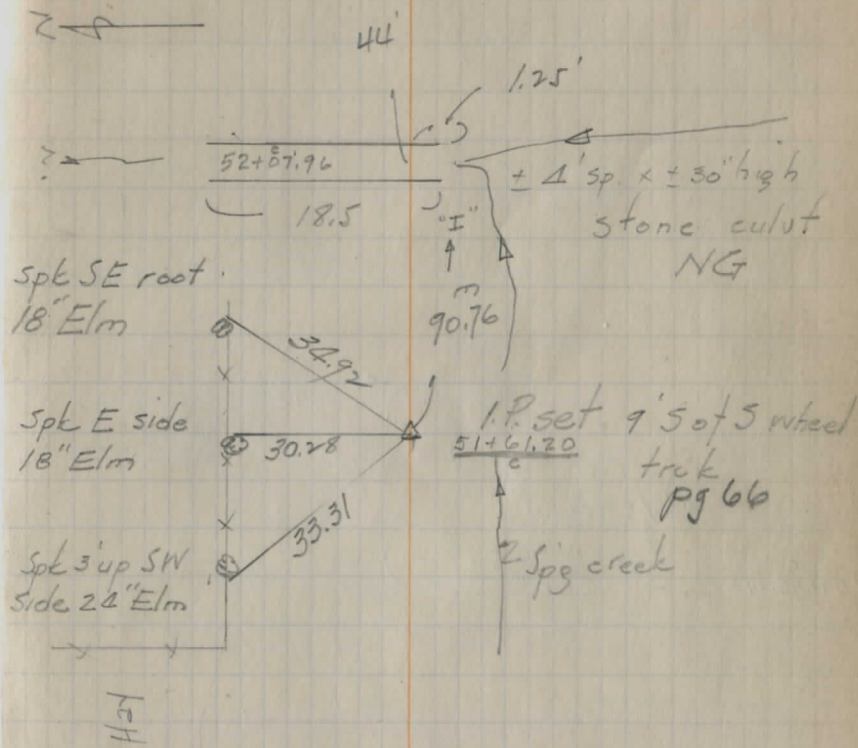 44'
1.25'
52+07.96
± 4' sp. x ± 30" high
18.5
"I"
stone culvt
NG
Spk SE root
18" Elm
90.76
34.92
Spk E side
18" Elm
30.28
I.P. set 9' S of S wheel
51+61.20
trck
pg 66
33.31
Spk 3' up SW
side 24" Elm
Spg creek